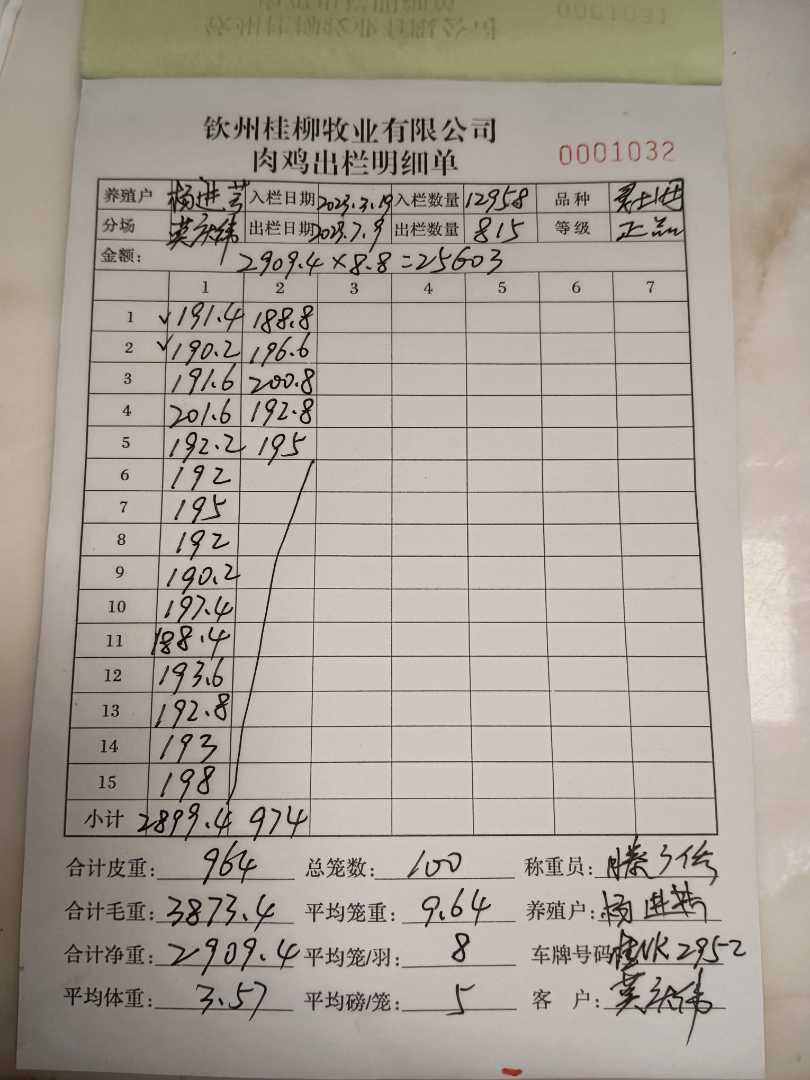 0001031
钦州桂柳牧业有限公司
肉鸡出栏明细单
0001032
养殖户 杨进芸 入栏日期 2023.3.19 入栏数量 12958 品种
分场 莫庆伟 出栏日期 2023.7.9 出栏数量 815 等级 正品
金额: 2909.4×8.8=25603
1 2 3 4 5 6 7
1 ✓191.4 188.8
2 ✓190.2 196.6
3 191.6 200.8
4 201.6 192.8
5 192.2 195
6 192
7 195
8 192
9 190.2
10 197.4
11 188.4
12 193.6
13 192.8
14 193
15 198
小计 2899.4 974
合计皮重: 964 总笼数: 100 称重员:
合计毛重: 3873.4 平均笼重: 9.64 养殖户: 杨进芸
合计净重: 2909.4 平均笼/羽: 8 车牌号码: 桂NK2952
平均体重: 3.57 平均磅/笼: 5 客 户: 莫庆伟